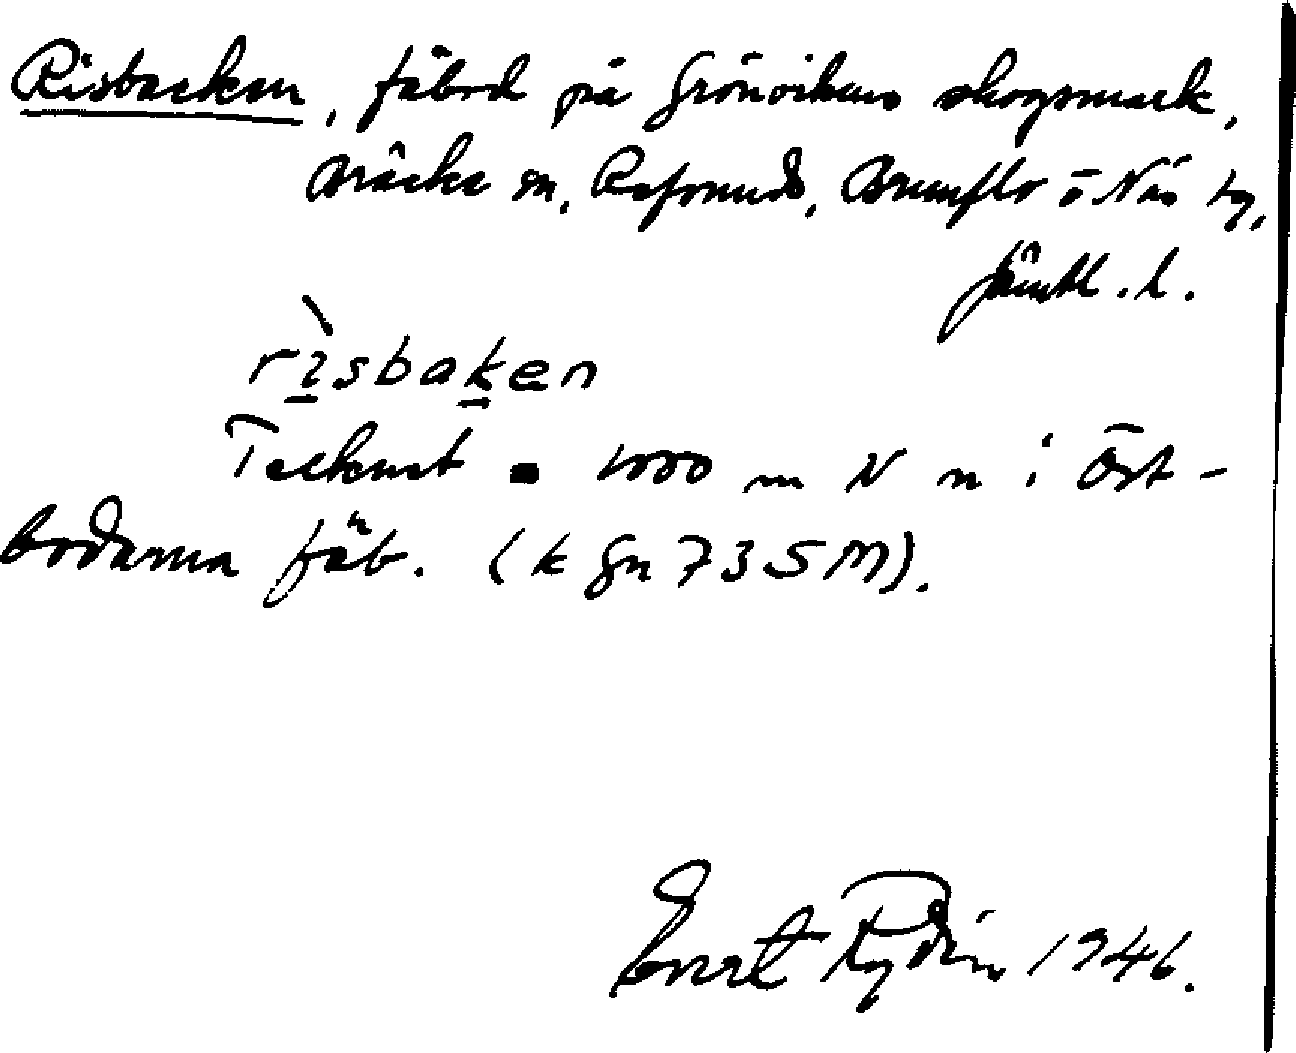 Risbacken, fäbod på Grönvikens skogsmark,
Bräcke sn, Refsunds, Brunflo o Näs tg,
Jämtl. l.
rìsbaken
Tecknat ▪ 1000 m N n i Öst-
bodarna fäb. (k Gn 73 5 M).
Evert Rydin 1946.